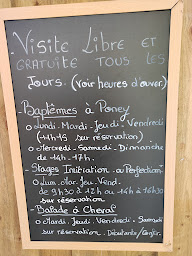 Visite Libre et
gratuite tous les
Jours. (voir heures d'ouver)
- Baptêmes à Poney
o Lundi - Mardi - Jeudi - Vendredi
sur réservation)
o Mercredi - Samedi - Dimanche
de 14h - 17h.
- Stages Initiation a Perfection t
o Lun. Mar. Jeu. Vend.
de 9h30 à 12h ou 14h à 16h30
sur réservation
- Balade à Cheval
o Mardi. Jeudi. Vendredi. Samedi
sur réservation. Débutants/Confir.